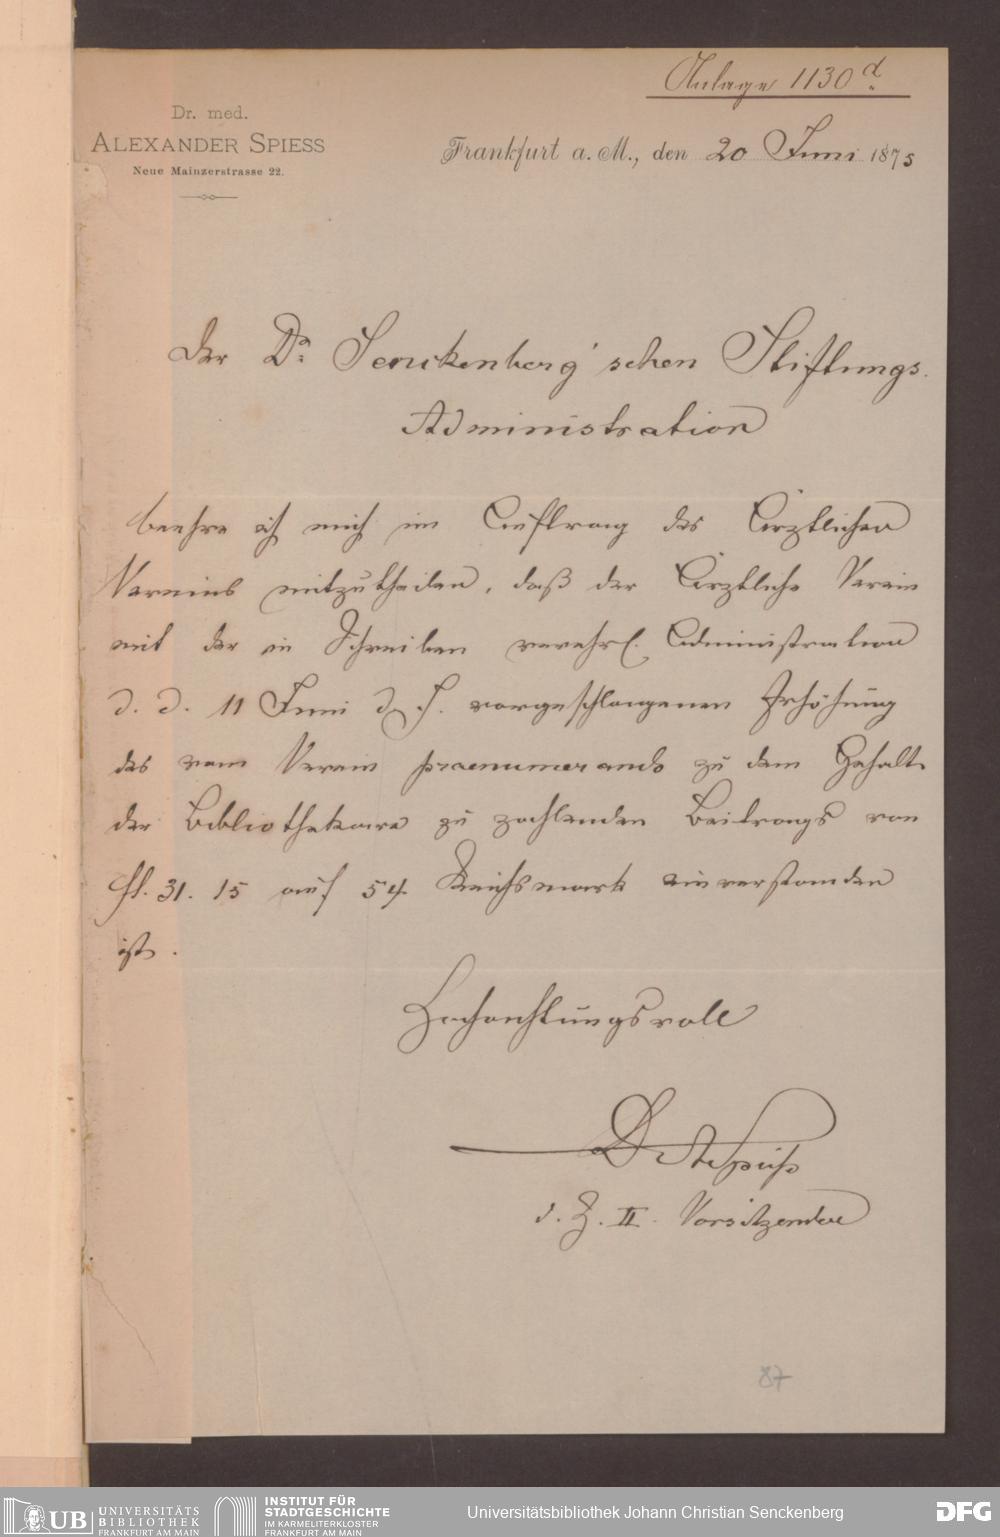 Anlage 1130 d.
Dr. med.
ALEXANDER SPIESS
Neue Mainzerstrasse 22.
Frankfurt a. M., den 20 Juni 1875
Der Dr. Senckenberg'schen Stiftungs-
Administration
beehre ich mich im Auftrag des Ärztlichen
Vereins mitzutheilen, daß der Ärztliche Verein
mit der in Schreiben verehrl. Administration
d. d. 11 Juni d. J. vorgeschlagenen Erhöhung
des vom Verein praenumerando zu dem Gehalt
der Bibliothekare zu zahlenden Beitrags von
fl. 31. 15 auf 54 Reichsmark einverstanden
ist.
Hochachtungsvoll
Dr A Spieß
d. Z. II. Vorsitzender
87
UB UNIVERSITÄTS
BIBLIOTHEK
FRANKFURT AM MAIN
INSTITUT FÜR
STADTGESCHICHTE
IM KARMELITERKLOSTER
FRANKFURT AM MAIN
Universitätsbibliothek Johann Christian Senckenberg
DFG